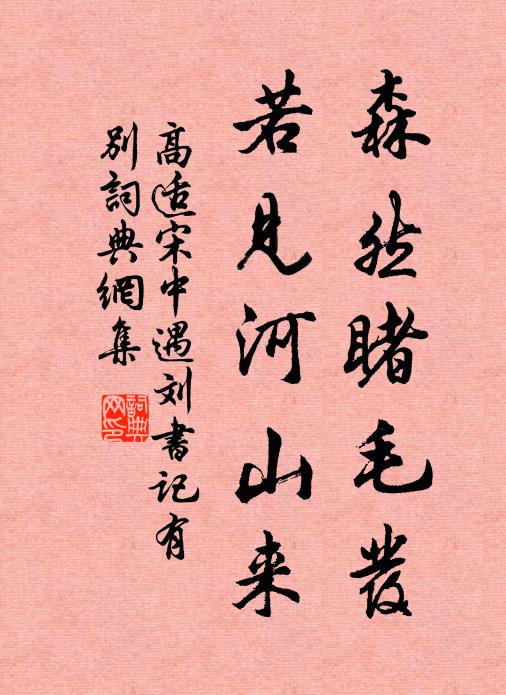 森然睹毛发
若见河山来
高适宋中遇刘書记有
别詞典網集
詞典网印